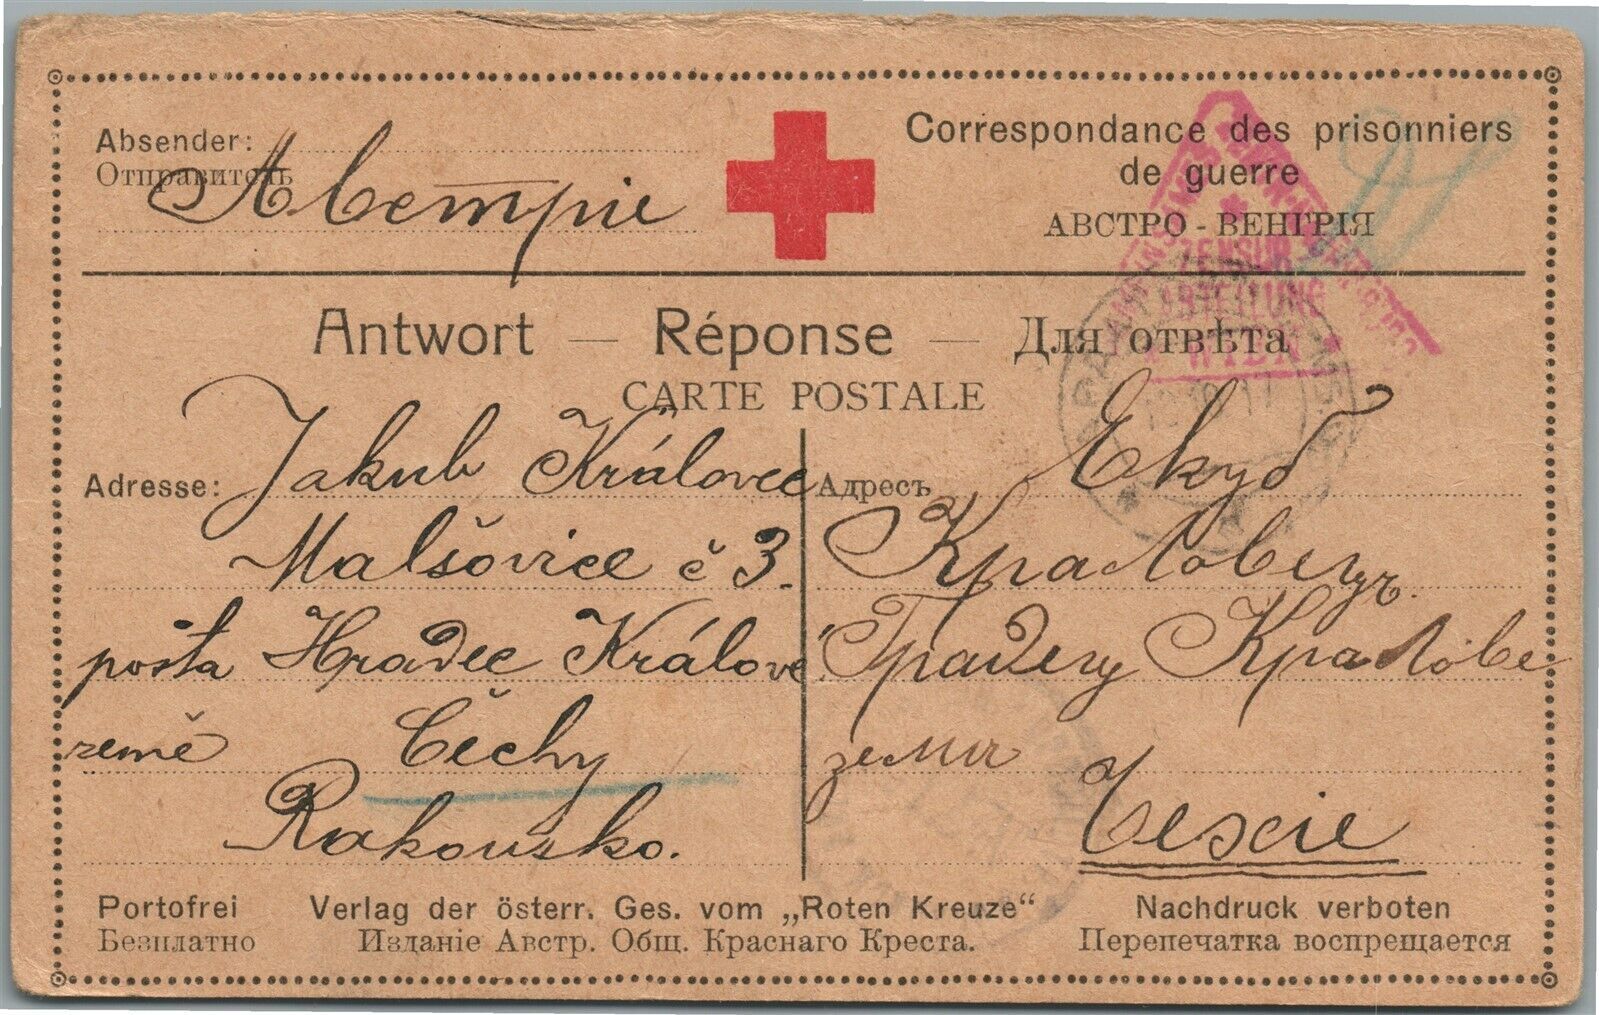 Absender:
Отправитель
Австріе
Correspondance des prisonniers
de guerre
АВСТРО - ВЕНГРІЯ
ZENSUR
ABTEILUNG
WIEN
Antwort — Réponse — Для отвѣта
CARTE POSTALE
Adresse: Jakub Královec
Malšovice č 3.
pošta Hradec Králové
země Čechy
Rakousko.
Адресъ Екуб
Краловецъ.
Градец Кралове
земия
Чехіе
Portofrei Verlag der österr. Ges. vom „Roten Kreuze“ Nachdruck verboten
Безплатно Изданіе Австр. Общ. Краснаго Креста. Перепечатка воспрещается